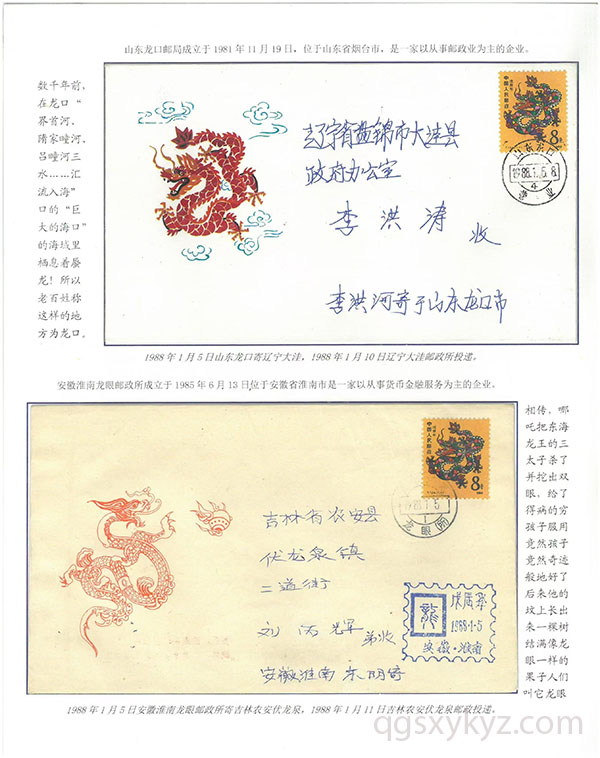 山东龙口邮局成立于1981年11月19日，位于山东省烟台市，是一家以从事邮政业为主的企业。
数千年前，
在龙口“
界首河、
隋家疃河、
吕疃河三
水……汇
流入海”
口的“巨
大的海口”
的海域里
栖息着蜃
龙！所以
老百姓称
这样的地
方为龙口。
中国人民邮政
8分
辽宁省盘锦市大洼县
政府办公室
李洪涛
收
李洪河寄于山东龙口市
山东龙口
1988.1.5.8
4
1988年1月5日山东龙口寄辽宁大洼，1988年1月10日辽宁大洼邮政所投递。
安徽淮南龙眼邮政所成立于1985年6月13日位于安徽省淮南市是一家以从事货币金融服务为主的企业。
中国人民邮政
8分
1988.1.5
1
龙眼(所)
吉林省农安县
伏龙泉镇
二道街
刘
弟收
安徽淮南
寄
龍
戊辰年
1988·1·5
安徽·淮南
相传，哪
吒把东海
龙王的三
太子杀了
并挖出双
眼，给了
得病的穷
孩子服用
竟然孩子
竟然奇迹
般地好了
后来他的
坟上长出
来一棵树
结满像龙
眼一样的
果子人们
叫它龙眼
1988年1月5日安徽淮南龙眼邮政所寄吉林农安伏龙泉，1988年1月11日吉林农安伏龙泉邮政投递。
qgsxykyz.com